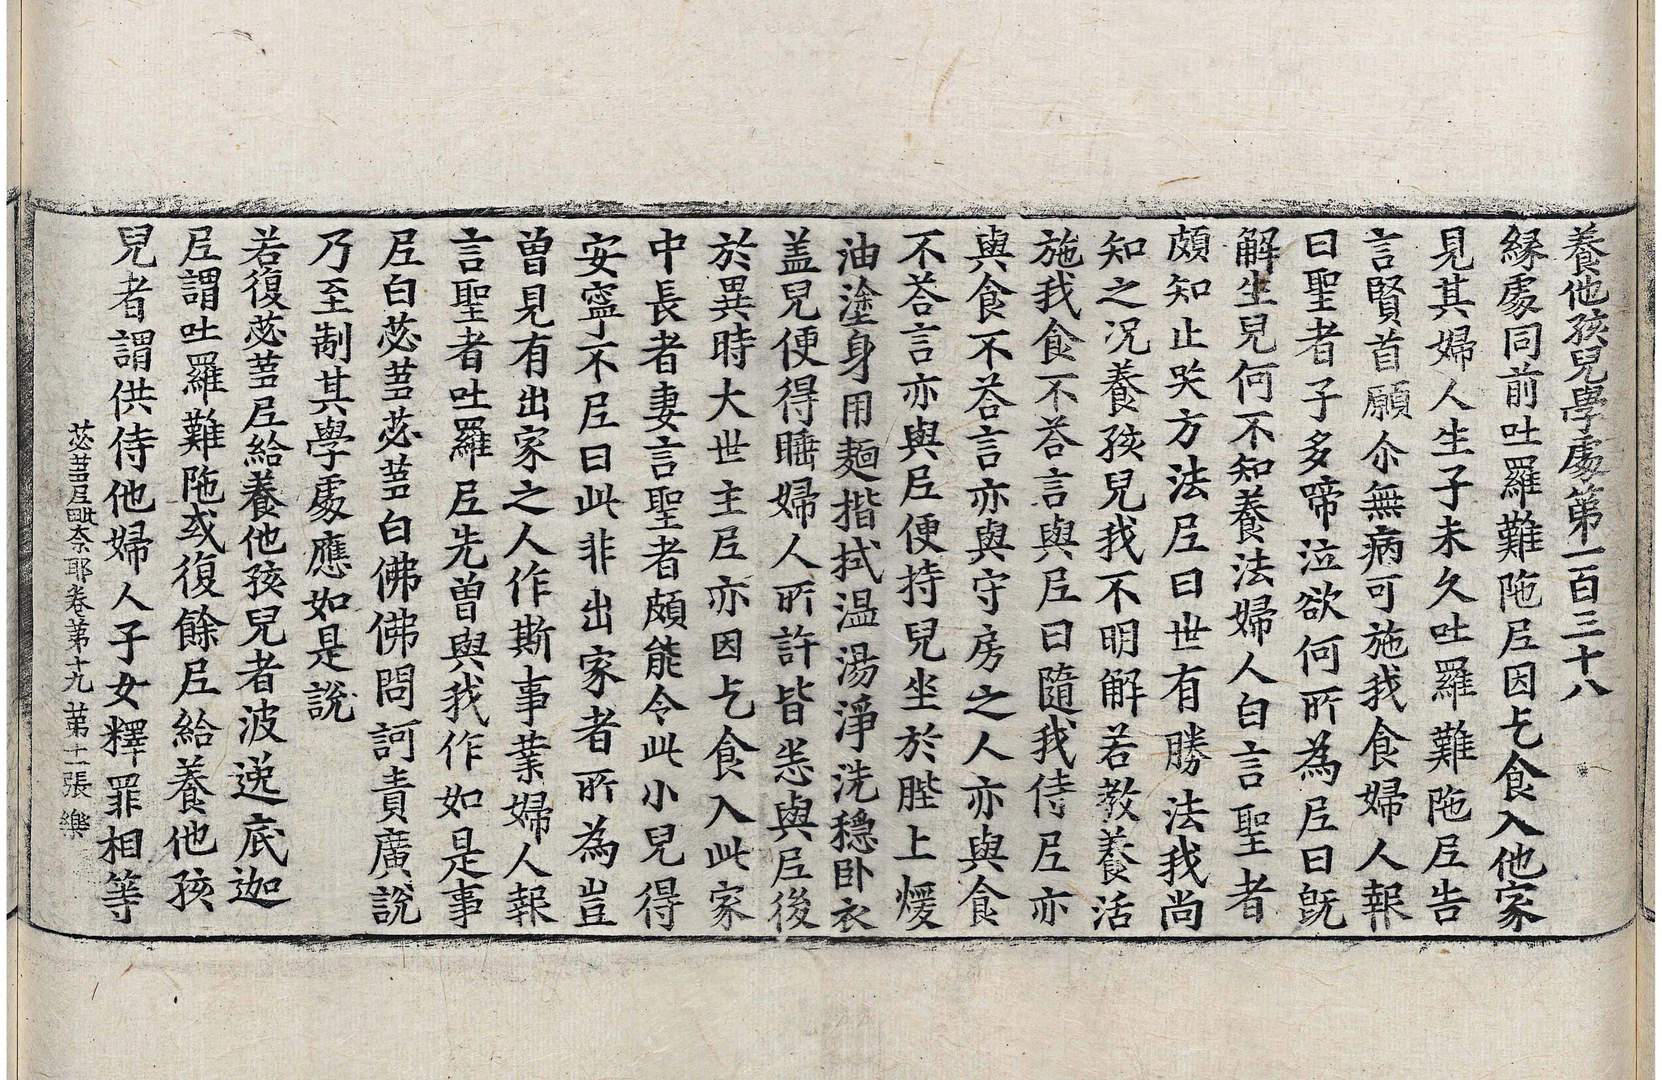 養他孩兒學處第一百三十八
縁處同前吐羅難陁尼因乞食入他家
見其婦人生子未久吐羅難陁尼告
言賢首願尒無病可施我食婦人報
曰聖者子多啼泣欲何所為尼曰旣
解生兒何不知養法婦人白言聖者
頗知止哭方法尼曰世有勝法我尚
知之况養孩兒我不明解若教養活
施我食不荅言與尼曰隨我侍尼亦
與食不荅言亦與守房之人亦與食
不荅言亦與尼便持兒坐於䏶上煖
油塗身用麵揩拭温湯淨洗穏卧衣
盖兒便得睡婦人所許皆悉與尼後
於異時大世主尼亦因乞食入此家
中長者妻言聖者頗能令此小兒得
安寧不尼曰此非出家者所為豈
曾見有出家之人作斯事業婦人報
言聖者吐羅尼先曾與我作如是事
尼白苾芻苾芻白佛佛問訶責廣說
乃至制其學處應如是說
若復苾芻尼給養他孩兒者波逸底迦
尼謂吐羅難陁或復餘尼給養他孩
兒者謂供侍他婦人子女釋罪相等
苾芻尼毗奈耶卷第十九 第十二張 樂